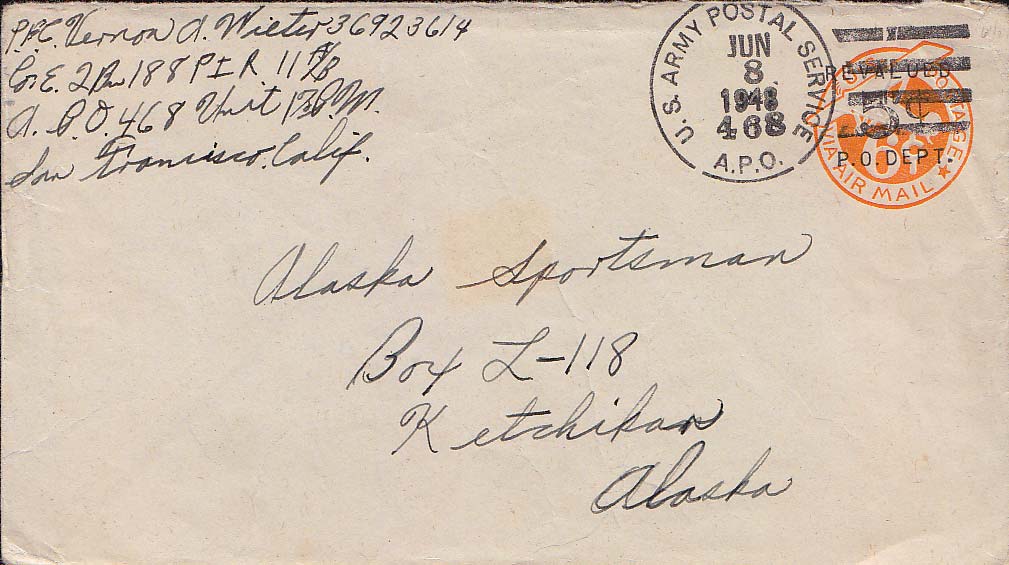 PFC. Vernon A. Wieter 36923614
Co. E. 2Bn 188 P I R. 11 A/B
A. P. O. 468 Unit 1
San Francisco, Calif.
U.S. ARMY POSTAL SERVICE
JUN
8
1948
468
A.P.O.
REVALUED
5¢
P.O. DEPT.
POSTAGE
6¢
VIA AIR MAIL
Alaska Sportsman
Box L-118
Ketchikan
Alaska